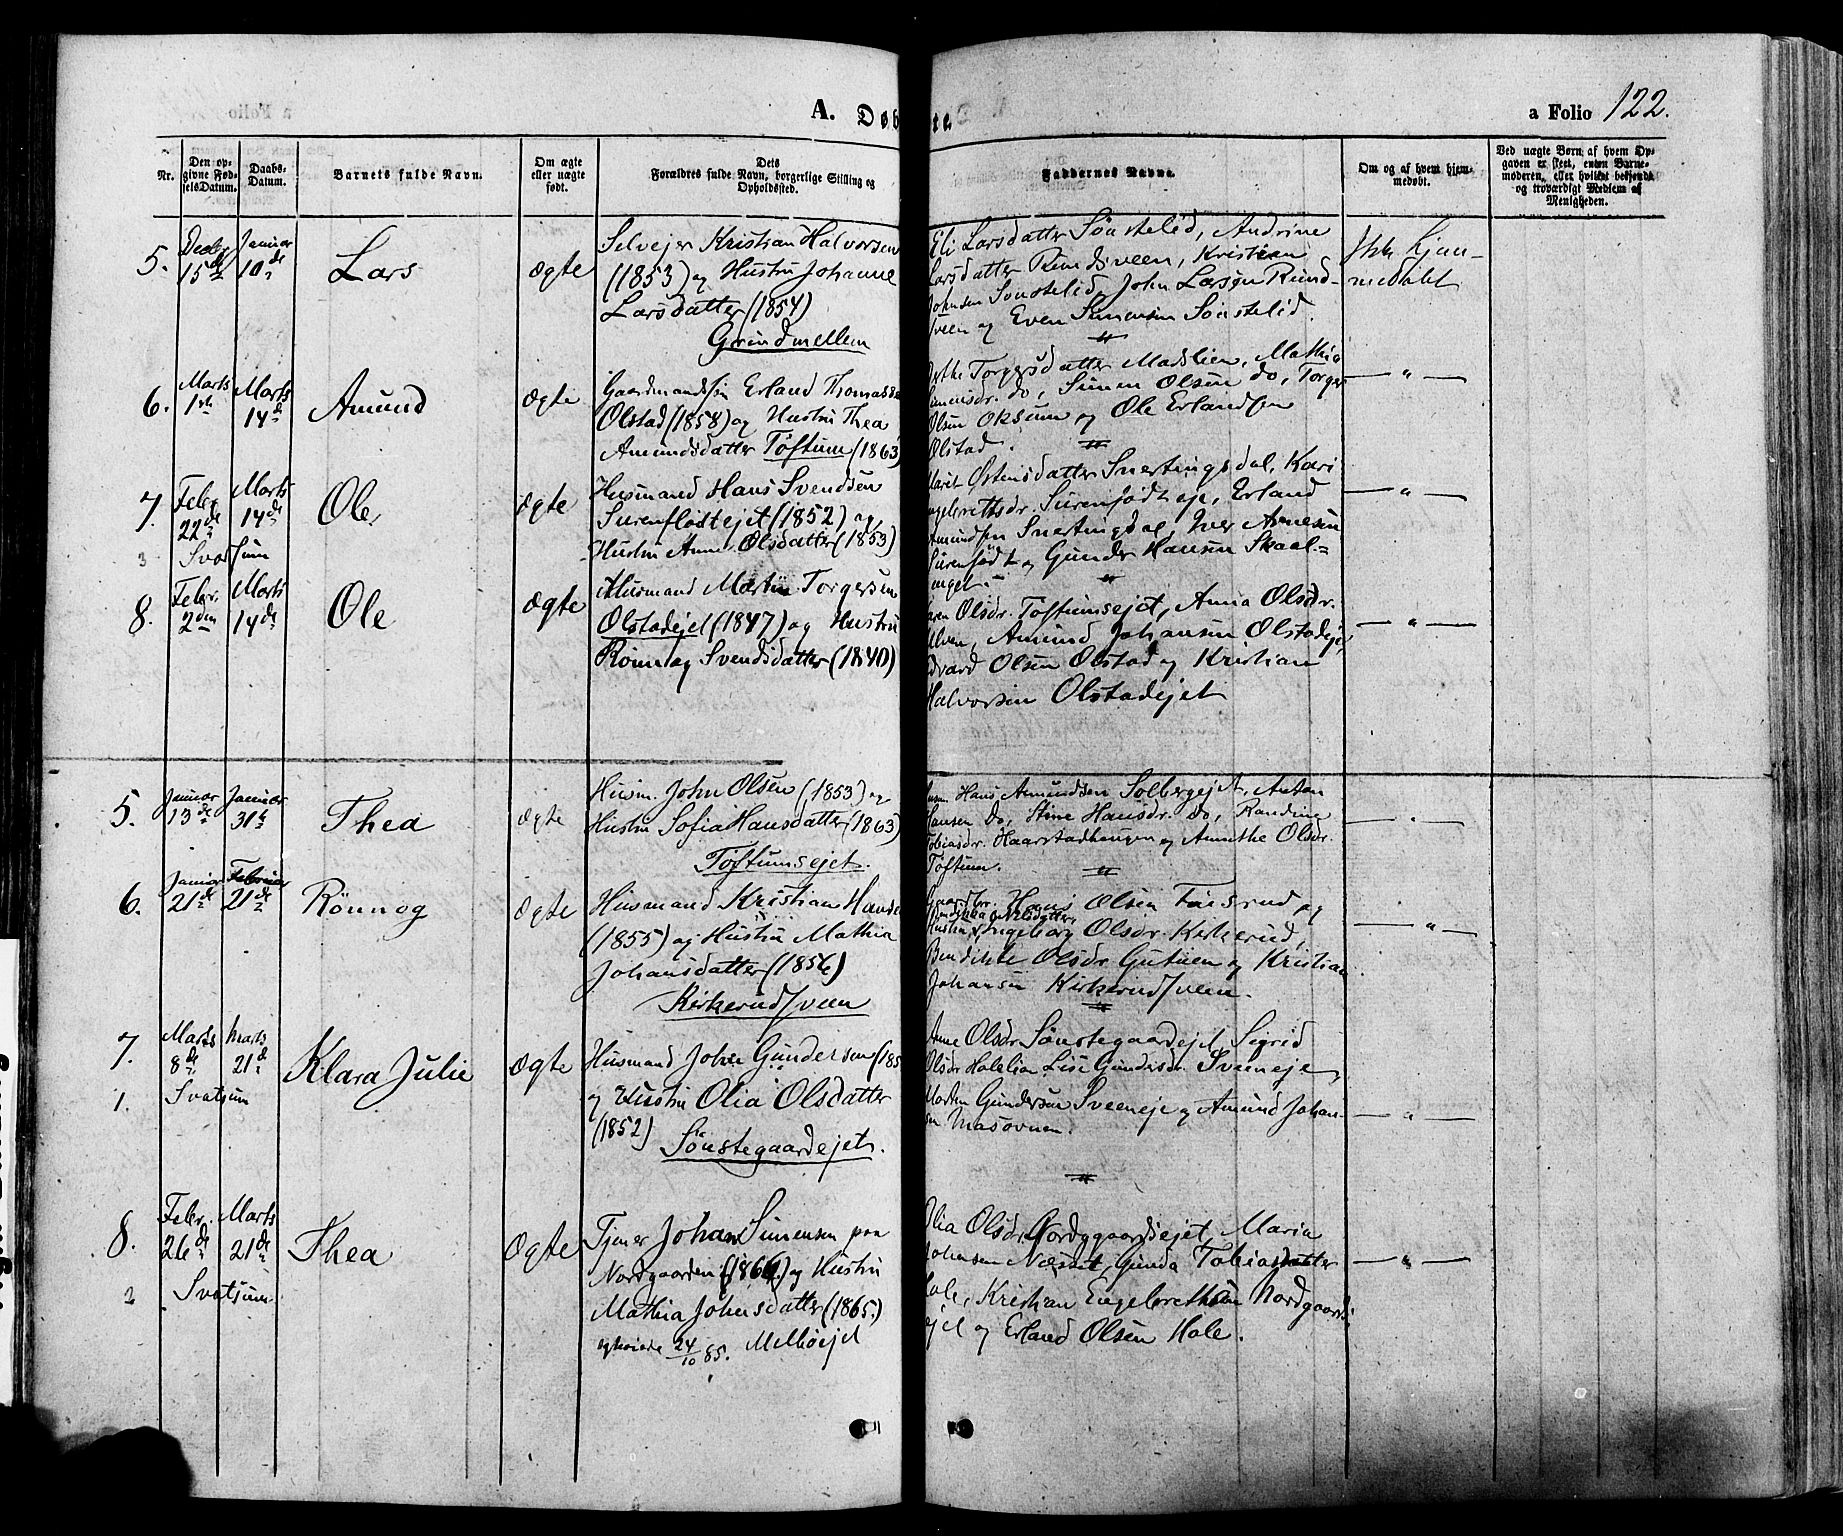 A. Døb
a Folio 122.
Nr.
Den op-
givne Fød-
selsDatum.
Daabs-
Datum.
Barnets fulde Navn.
Om ægte
eller uægte
født.
Dets
Forældres fulde Navn, borgerlige Stilling og
Opholdssted.
Faddernes Navne.
Om og af hvem hjem-
medøbt.
Ved uægte Børn af hvem Op-
gaven er skeet, enten Barne-
moderen, eller hvilket bekjendt
og troværdigt Medlem af
Menigheden.
5.
15de
Januar
10de
Lars
Ægte
Selvejer Kristian Halvorsen
(1853) og Hustru Johanne
Larsdatter (1854)
Grindmellem
Eli Larsdatter Sönstelid, Andrine
Larsdatter Rundsveen, Kristian
Johnsen Sönstelid, John Larsen Rund-
sveen og Even Simensen Sönstelid.
Ikke hjem-
medöbt
6.
Marts
1ste
Marts
14de
Amund
Ægte
Gaardmandssön Erland Thomassen
Olstad (1858) og Hustru Thea
Amundsdatter Töftum (1863)
Torgersdatter Madslien, Mathia
Simensdr. do, Simen Olsen do, Torger
Olsen Oksum og Ole Erlandsen
Olstad.
— " —
7.
Febr
22de
Marts
14de
Ole
Ægte
Husmand Hans Svendsen
Surenflödtejet (1852) og
Hustru Anne Olsdatter (1853)
3 Svatsum
Marit Østensdatter Snertingsdal, Kari
Surenflödt eje, Erland
Amundsen Snertingsdal, Iver Arnesen
Surenflödt og Gunder Hansen Skaal-
— " —
8.
Febr.
2den
Marts
14de
Ole
Ægte
Husmand Martin Torgersen
Olstadejet (1847) og Hustru
Rönnog Svendsdatter (1840)
Karen Olsdr. Töftumsejet, Anna Olsdr.
Ulven, Amund Johansen Olstadejet
Edvard Olsen Olstad og Kristian
Halvorsen Olstadejet
— " —
5.
Januar
13de
Januar
31te
Thea
Ægte
Husm. John Olsen (1853) og
Hustru Sofia Hansdatter (1863)
Töftumsejet.
Husm. Hans Amundsen Solbergejet, Anton
Hansen do, Stine Hansdr. do, Randine
Tobiasdr. Haarstadhaugen og Annethe Olsdr.
Töftum.
6.
Januar
21de
Februar
21de
Rönnog
Ægte
Husmand Kristian Hansen
(1855) og Hustru Mathia
Johansdatter (1856)
Kirkerudsveen
Gaardbr. Hans Olsen og
Hustru Ingeborg Olsdr. Kirkerud,
Bendikte Olsdr. Gutuen og Kristian
Johansen Kirkerudsveen.
— " —
7.
Marts
8de
Marts
21de
Klara Julie
Ægte
Husmand Johan Gundersen (185
og Hustru Olia Olsdatter
(1852)
Sönstegaardejet.
1. Svatsum
Anne Olsdr. Sönstegaardejet, Sigrid
Olsdr. Lise Gundersdr. Sveeneje,
Morten Gundersen Sveeneje og Amund Johan-
sen Masovnen.
— " —
8.
Febr.
26de
Marts
21de
Thea
Ægte
Tjener Johan Simensen paa
Nordgaarden (1866) og Hustru
Mathia Johnsdatter (1865)
24/10 85. Melböejet
2 Svatsum
Olia Olsdr. Nordgaardsejet, Maria
Johnsen Næsset, Gunda Tobiasdatter
Hole, Kristian Engebrethsen Nordgaards-
ejet og Erland Olsen Hole.
— " —